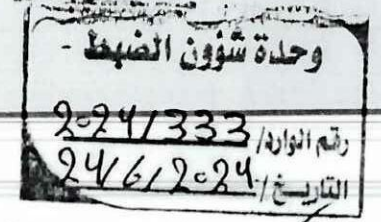 وحدة شؤون الضبط -
رقم الوارد/ 2024/333
التاريخ/ 24/6/2024